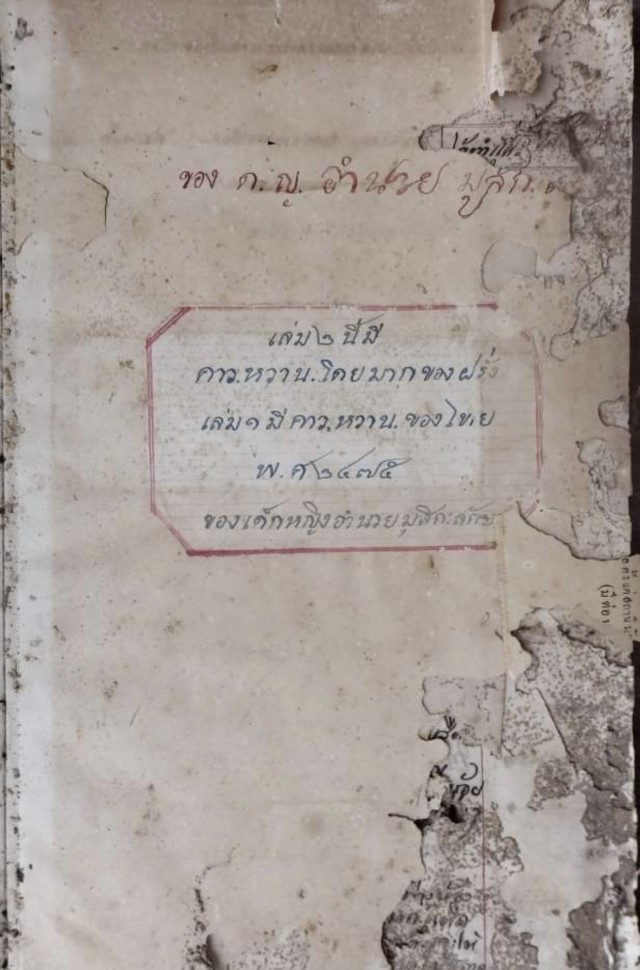 ของ ด.ญ. อำนวย มูสิก
เล่ม ๒ นี้มี
คาว.หวาน.โดยมากของฝรั่ง
เล่ม ๑ มี คาว.หวาน.ของไทย
พ.ศ ๒๔๗๕
ของเด็กหญิงอำนวย มุสิกะลักษ
(มีต่อ
น้อย